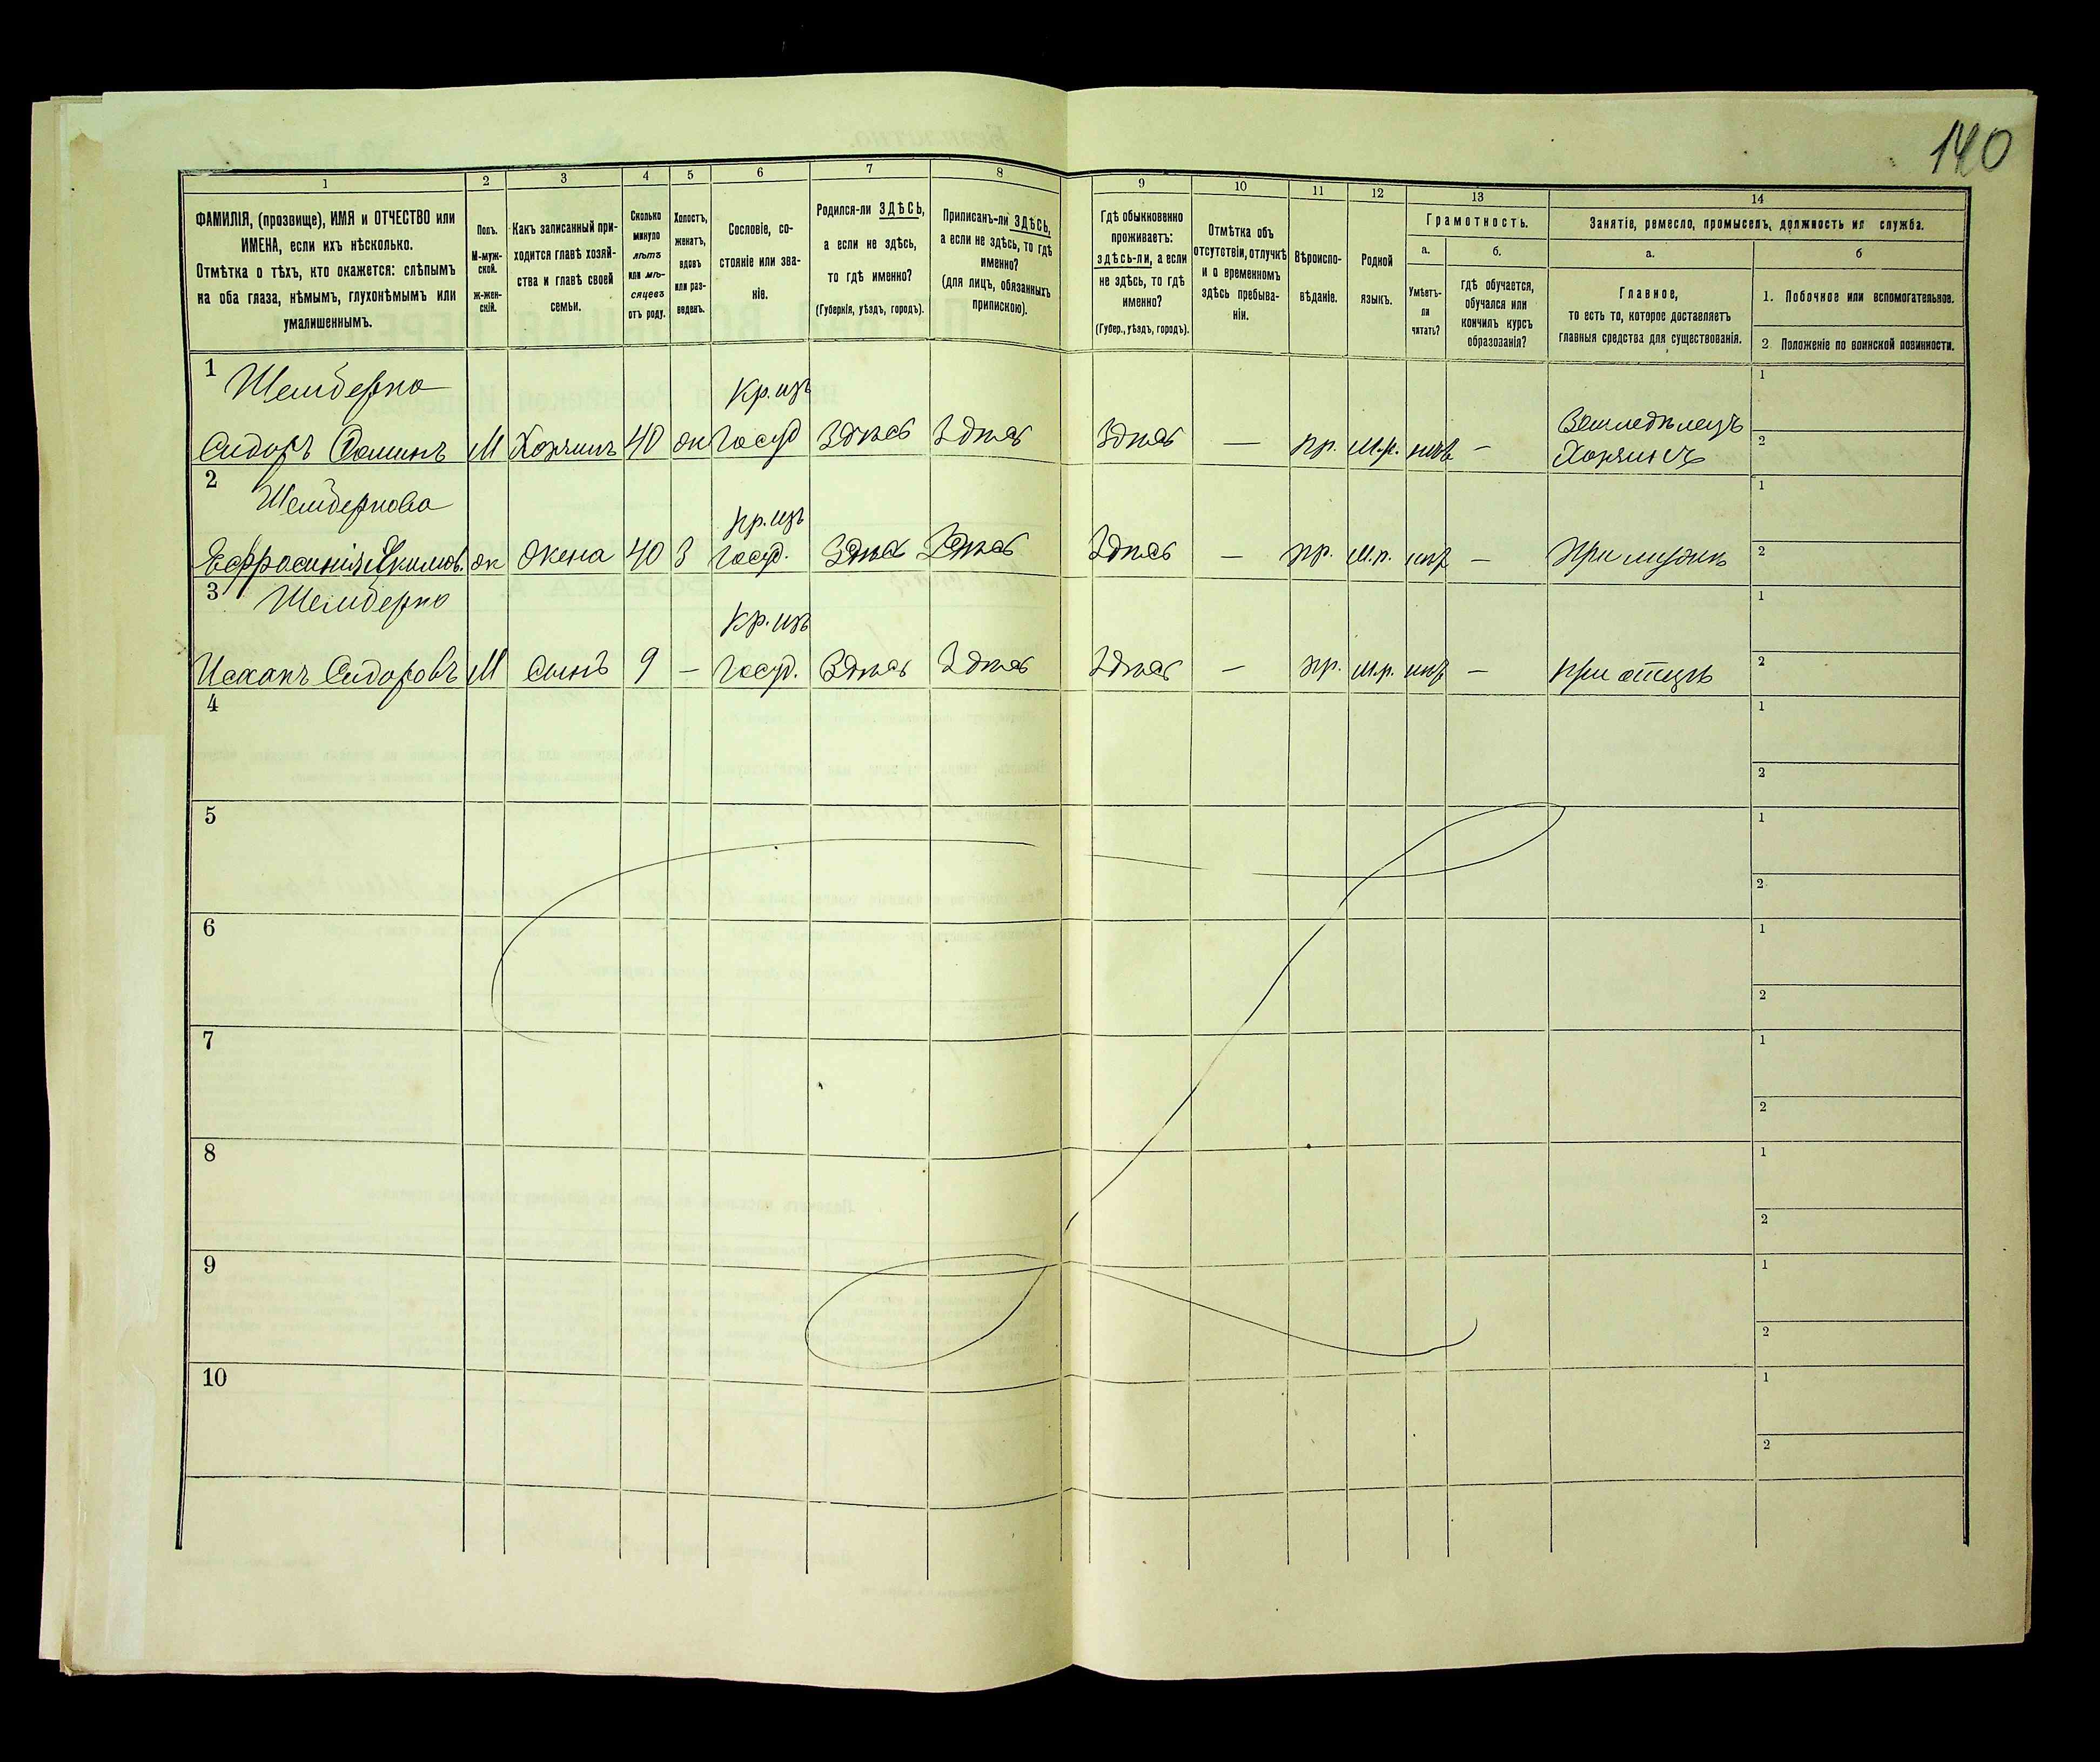 140
1 2 3 4 5 6 7 8 9 10 11 12 13 14
ФАМИЛІЯ, (прозвище), ИМЯ и ОТЧЕСТВО или
ИМЕНА, если ихъ нѣсколько.
Отмѣтка о тѣхъ, кто окажется: слѣпымъ
на оба глаза, нѣмымъ, глухонѣмымъ или
умалишеннымъ.
Полъ.
М-муж-
ской.
ж-жен-
скій.
Какъ записанный при-
ходится главѣ хозяй-
ства и главѣ своей
семьи.
Сколько
минуло
лѣтъ
или мѣ-
сяцевъ
отъ роду.
Холостъ,
женатъ,
вдовъ
или раз-
веденъ.
Сословіе, со-
стояніе или зва-
ніе.
Родился-ли ЗДѢСЬ,
а если не здѣсь,
то гдѣ именно?
(Губернія, уѣздъ, городъ).
Приписанъ-ли ЗДѢСЬ,
а если не здѣсь, то гдѣ
именно?
(для лицъ, обязанныхъ
припискою).
Гдѣ обыкновенно
проживаетъ:
здѣсь-ли, а если
не здѣсь, то гдѣ
именно?
(Губер., уѣздъ, городъ).
Отмѣтка объ
отсутствіи, отлучкѣ
и о временномъ
здѣсь пребыва-
ніи.
Вѣроиспо-
вѣданіе.
Родной
языкъ.
Грамотность.
а.
Умѣетъ-
ли
читать?
б.
гдѣ обучается,
обучался или
кончилъ курсъ
образованія?
Занятіе, ремесло, промыселъ, должность или служба.
а.
Главное,
то есть то, которое доставляетъ
главныя средства для существованія.
б
1. Побочное или вспомогательное.
2. Положеніе по воинской повинности.
1
Кр. изъ
Сидоръ М Хозяинъ 40 ж Госуд Здѣсь Здѣсь Здѣсь — пр. м.р. нѣт — Земледѣлецъ
Хозяинъ
1
2
2
Кр. изъ
Ефросинія Якимов. ж Жена 40 З Госуд. Здѣсь Здѣсь Здѣсь — пр. м.р. нѣт — При мужѣ
1
2
3
Кр. изъ
Сидоровъ М Сынъ 9 — Госуд. Здѣсь Здѣсь Здѣсь — пр. м.р. нѣт — При отцѣ
1
2
4
1
2
5
1
2
6
1
2
7
1
2
8
1
2
9
1
2
10
1
2